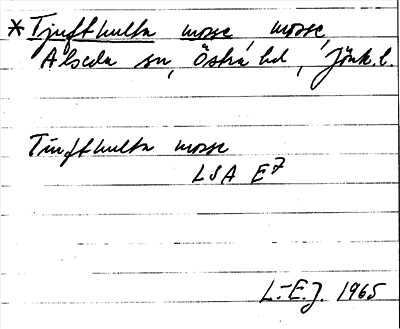 *Tjufthulta mosse, mosse,
Alseda sn, Östra hd, Jönk. l.
Tiufthulta mosse
LSA E7
L.-E.J. 1965